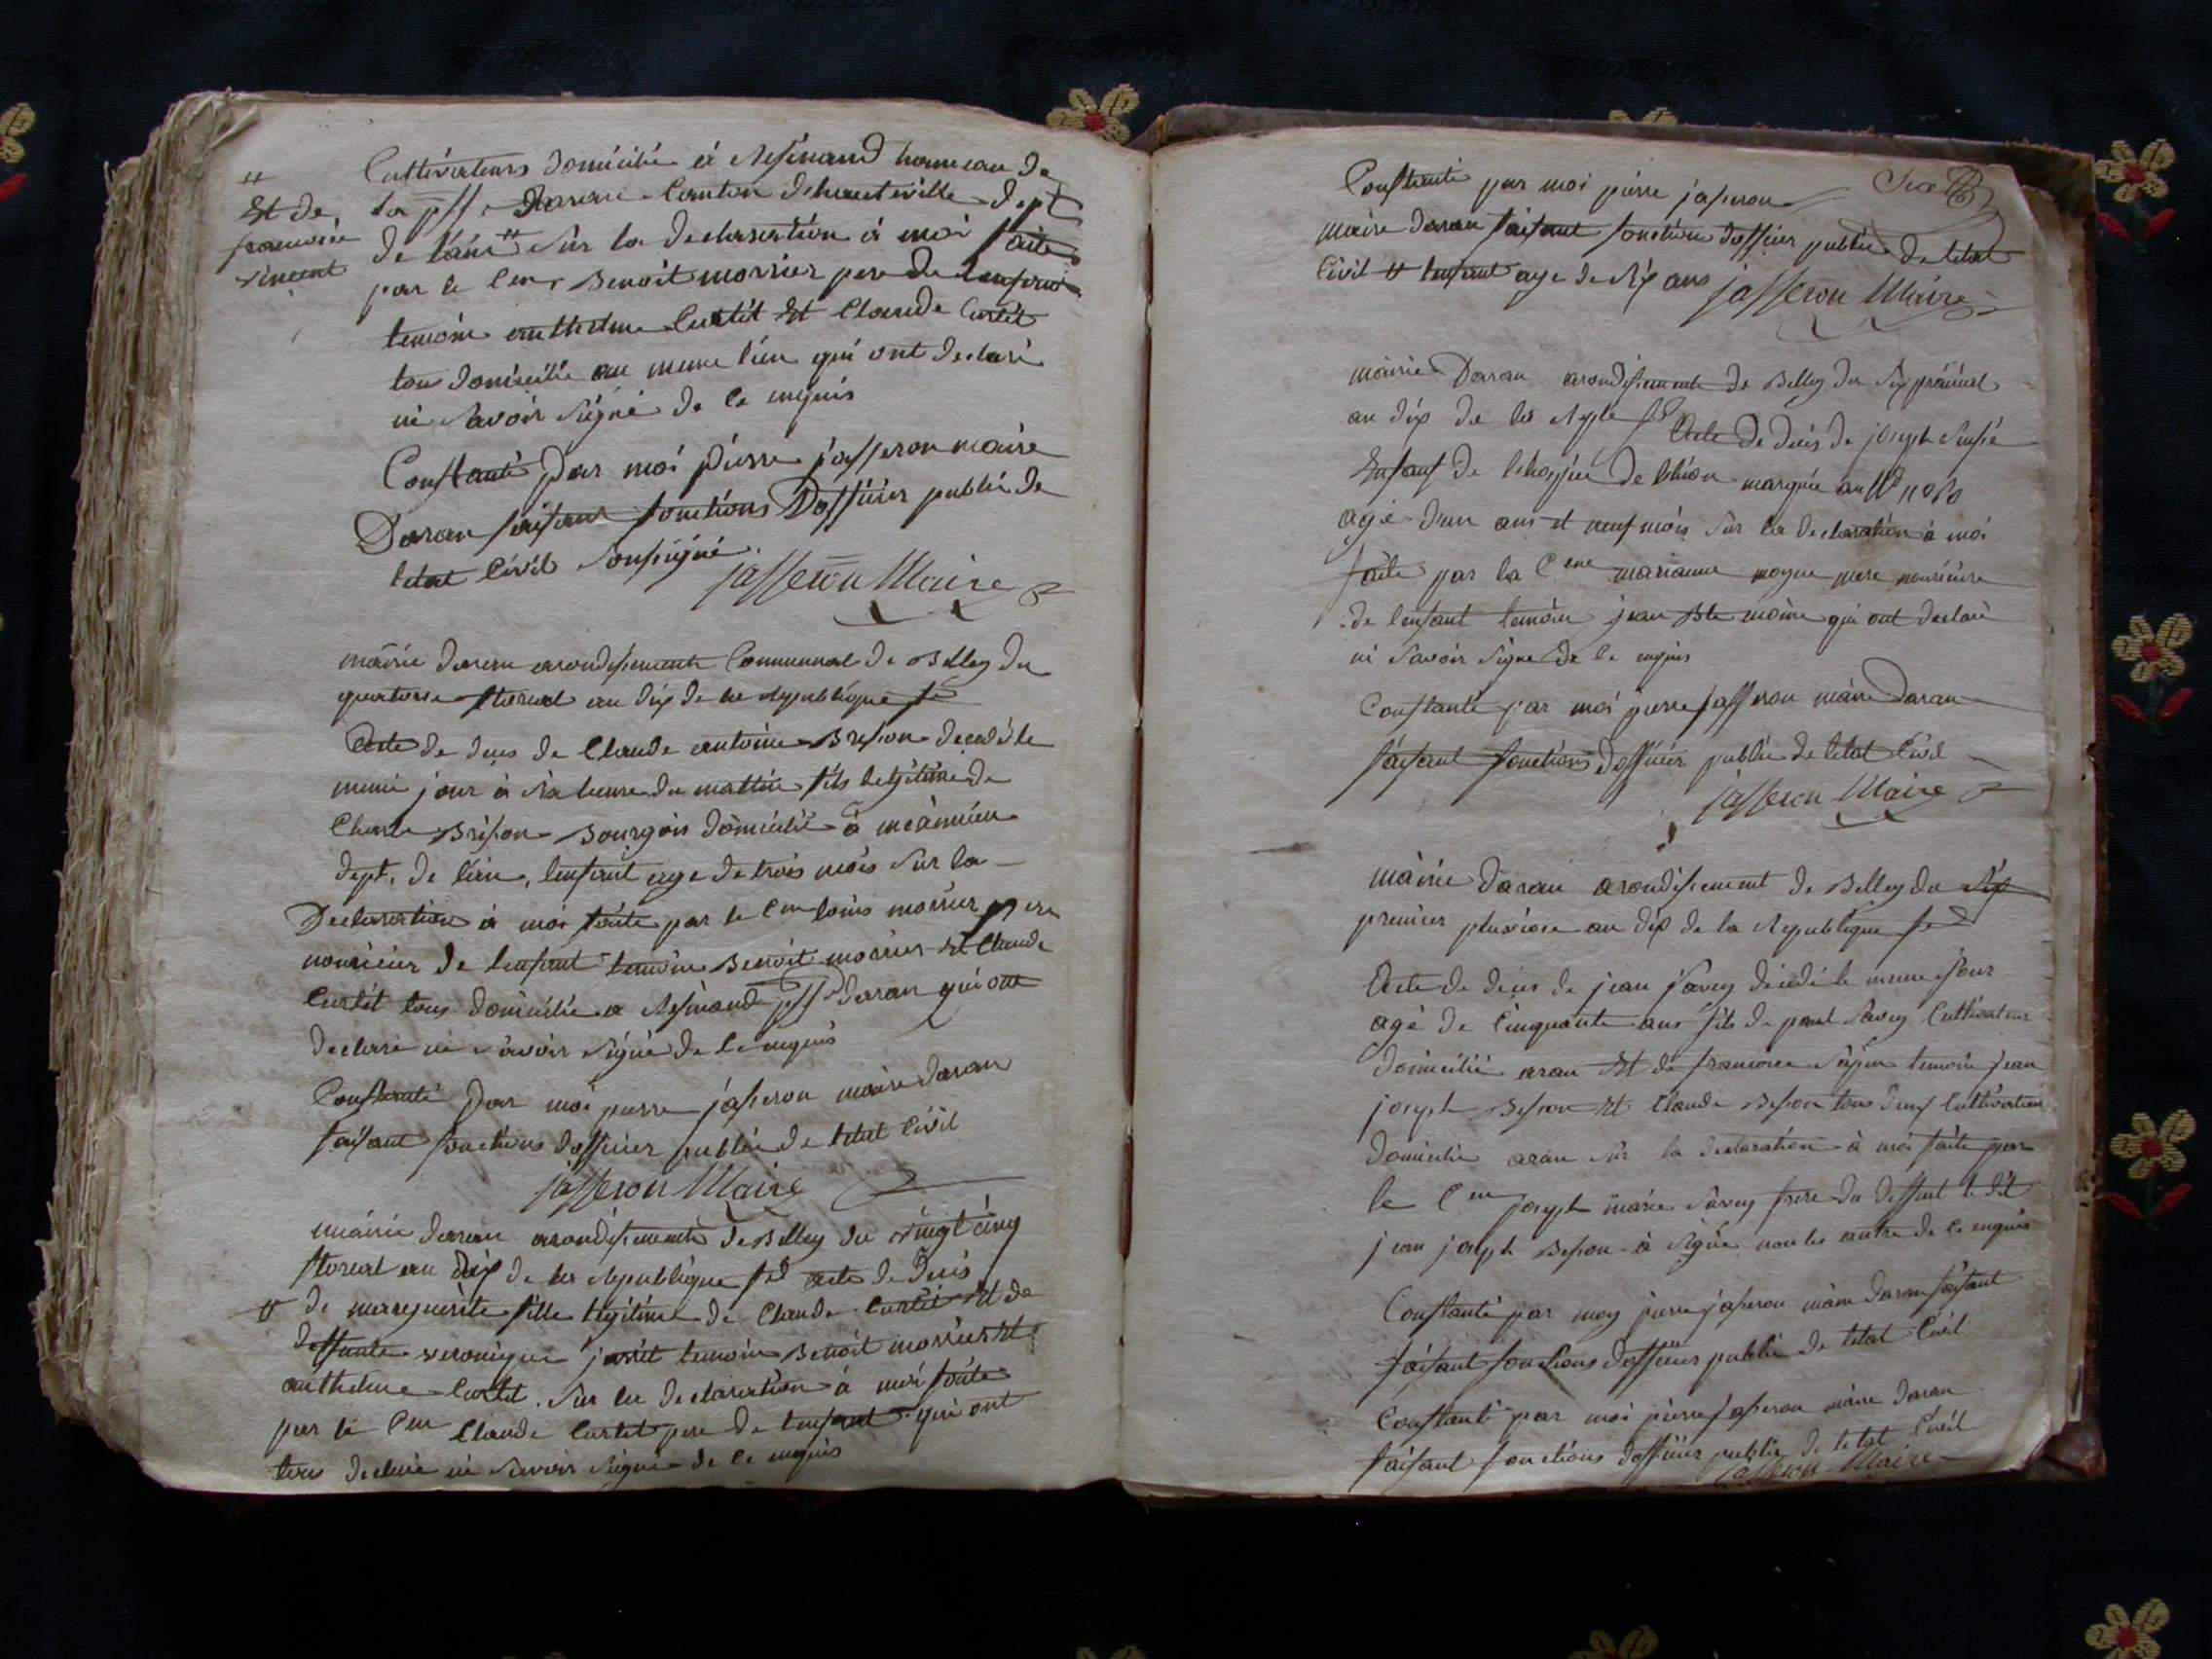 Cultivateurs domicilié a Resinand hameau de
la pss. daran Canton dehauteville dept
de lain " Sur la declaration à moi faite
"
Et de
francoise
vincent
par le Cen Benoit morrier pere de lenfant
temoin anthelme Curtit Et Claude Curtit
tous domicilié au meme lieu qui ont declaré
ni Savoir Signé de ce enquis
Constanté par moi pierre jasseron maire
Daran faisant fonctions Dofficier public de
letat Civil Soussigné.
jasseron Maire
mairie daran arondissement Communal de Belley du
quatorse floreal an dix de la Republique
Acte de deces de Claude antoine Brison decedé le
meme jour à six heure du mattin fils legitime de
Brison Bourgois domicilié à
dept. de lain, lenfant age de trois mois Sur la
Declaration à moi faite par le Cen louis morrier pere
nouricier de lenfant temoin Benoit morrier Et Claude
Curtit tous domicilié a Resinand pss daran qui ont
declaré ni Savoir Signé de ce enquis
Constanté par moi pierre jaseron maire daran
faisant fonctions dofficier public de letat Civil
jasseron Maire
mairie daran arondissement de Belley du vingt cinq
floreal an dix de la Republique acte de deces
" de marguerite fille legitime de Claude Curtit Et de
deffunte veronique temoin Benoit morrier Et
anthelme Curtit. Sur la declaration à moi faite
par le Cen Claude Curtit pere de lenfant qui ont
tous declaré ni Savoir Signé de ce enquis
Constanté par moi pierre jaseron
maire daran faisant fonctions dofficier public de letat
Civil " lenfant age de six ans jasseron Maire
mairie Daran arondissement de Belley du Six prairial
an dix de la Reple Acte de deces de joseph
Enfant de lhospice de marquée au
agé dun ans et neuf mois Sur la declaration à moi
faite par la Cene marianne moyne mere nouriciere
de lenfant temoin jean Bte moine qui ont declaré
ni Savoir Signe de ce enquis
Constanté par moi pierre jasseron maire Daran
faisant fonctions dofficier public de letat Civil
jasseron Maire
mairie daran arondissement de Belley du six
premier pluviose an dix de la Republique
Acte de deces de jean Savey décédé le meme jour
agé de Cinquante ans fils de paul Savey Cultivateur
domicilié aran Et de francoise temoin jean
joseph Besson Et Claude Besson tous deux Cultivateur
domicilie aran Sur la declaration à moi faite par
le Cen joseph marie Savey frere du deffunt le dit
jean joseph Besson à Signé non les autre de ce enquis
Constanté par moy pierre jaseron maire daran faisant
faisant fonctions dofficier public de letat Civil
Constanté par moi pierre jaseron maire daran
faisant fonctions dofficier public de letat Civil
jasseron Maire